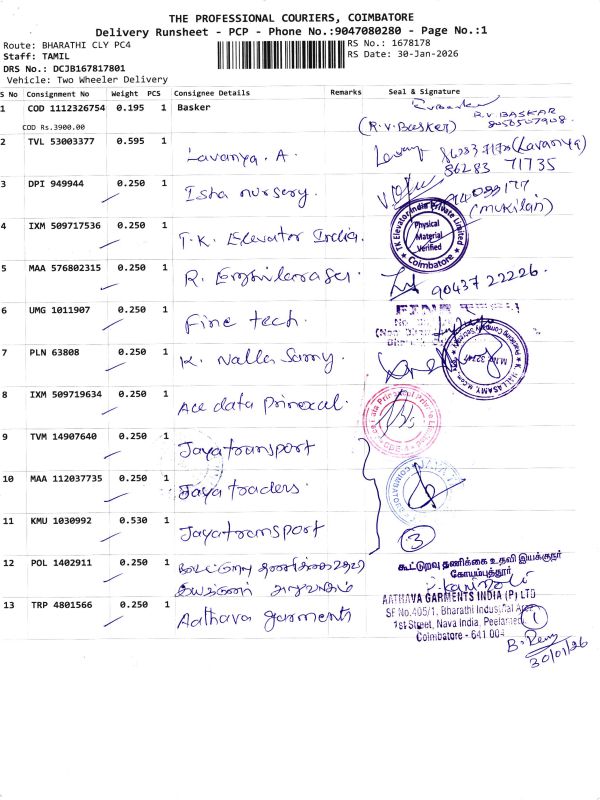 THE PROFESSIONAL COURIERS, COIMBATORE
Delivery Runsheet - PCP - Phone No.:9047080280 - Page No.:1
Route: BHARATHI CLY PC4
RS No.: 1678178
Staff: TAMIL
RS Date: 30-Jan-2026
DRS No.: DCJB167817801
Vehicle: Two Wheeler Delivery
S No Consignment No Weight PCS Consignee Details Remarks Seal & Signature
1 COD 1112326754 0.195 1 Basker
R.V.BASKAR
COD Rs.3900.00
(R.V.Basker)
2 TVL 53003377 0.595 1 Lavanya. A. (Lavanya)
86283 71735
3 DPI 949944 0.250 1 Isha nursery.
(mukilan)
4 IXM 509717536 0.250 1 T.K. Elevator India.
TK Elevator India Private Limited
Physical
Material
Verified
Coimbatore
5 MAA 576802315 0.250 1 R.
90437 22226.
6 UMG 1011907 0.250 1 Fine tech.
7 PLN 63808 0.250 1 K. Nalla Samy.
8 IXM 509719634 0.250 1 Ace data
9 TVM 14907640 0.250 1 Jayatransport
10 MAA 112037735 0.250 1 Jaya traders.
11 KMU 1030992 0.530 1 Jayatransport
3
12 POL 1402911 0.250 1
கூட்டுறவு தணிக்கை உதவி இயக்குநர்
கோயம்புத்தூர்
13 TRP 4801566 0.250 1 Aathava garments
AATHAVA GARMENTS INDIA (P) LTD
SF No.405/1, Bharathi Industrial Area
1st Street, Nava India, Peelamedu
Coimbatore - 641 004
1
30/01/26